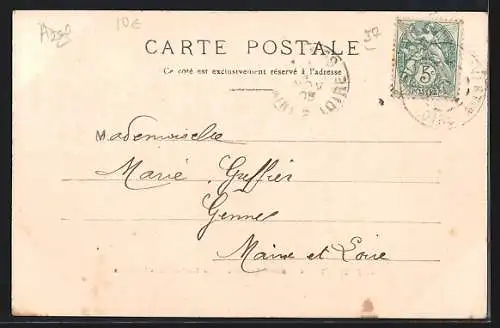 10€
37
CARTE POSTALE
Ce côté est exclusivement réservé à l'adresse
5
LOIRE
Mademoiselle
Marie
Gennes
Maine et Loire